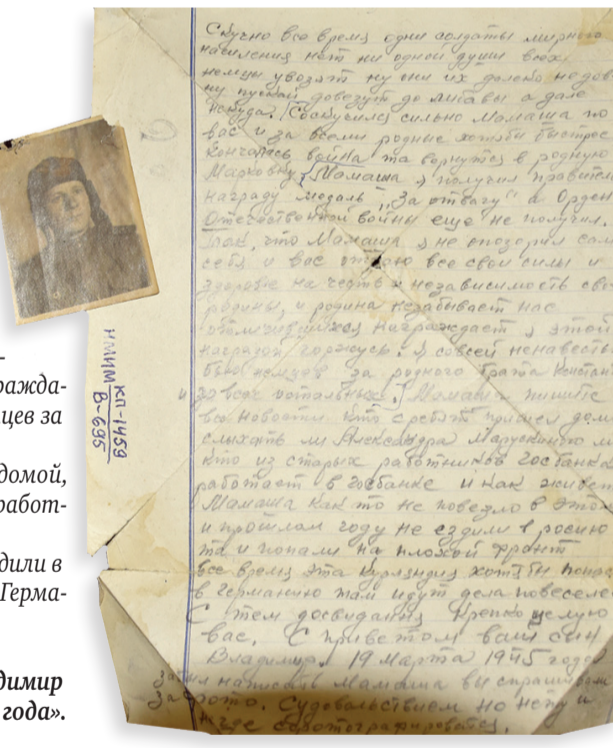 Скучно все время одни солдаты мирного
населения нет ни одной души всюх
немцы увозят ну они их далеко недов
ну пускай довезут до либавы а дале
некуда. Соскусился сильно Мамаша по
вас и за всеми родные хотябы быстрее
кончалась война та вернутся в родную
Марковку. Мамаша я получил правител
награду медаль „За отвагу" а Орден
Отечественной войны еще не получил.
Так, что Мамаша я не опозорил сам
себя и вас отдаю все свои силы и
здоровье на честь и независимость сво
родины, и родина незабывает нас
отличившихся награждает я этой
наградой горжусь. Я совсей ненавесть
бью немцев за родного брата Констан
и за всех остальных. Мамаша пишите
все новости кто с ребят пришел дом
слыхать ли Александра Марускиного м
кто из старых работников госбанка
работает в госбанке и как живет
Мамаша как то не повезло в этом
и прошлом году не ездили в росию
та и попали на плохой фронт
все время эта курляндия хотябы попра
в Германию там идут дела повеселе
С тем досвидания крепко целую
вас. С приветом ваш сын
Владимир. 19 Марта 1945 года
Забыл написать Мамаша вы спрашивали
за фото. Судовольствием но нету и
негде сфотографироватся.
НМИМ КП-1459
В-695
ражда-
цев за
домой,
работ-
дили в
Герма-
димир
года».